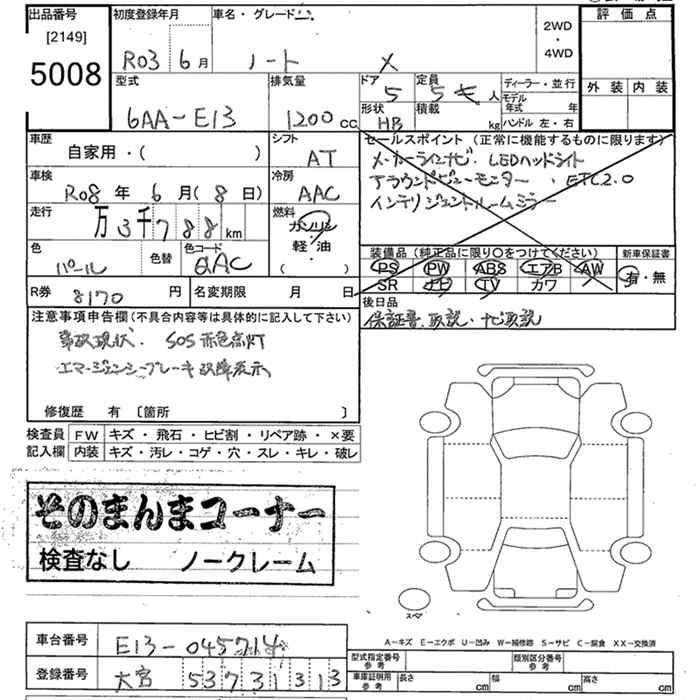 出品番号
[2149]
5008
初度登録年月
R03 6月
車名・グレード
ノート X
2WD
・
4WD
評価点
外装 内装
型式
6AA-E13
排気量
1200cc
ドア
5
定員
5 人
形状
HB
積載
kg
ディーラー・並行
モデル
年式 年
ハンドル 左・右
車歴
自家用・( )
シフト
AT
車検
R08年 6月(8日)
冷房
AAC
走行
万3千788km
燃料
ガソリン
軽・油
( )
色
パール
色替
色コード
QAC
R券
8170円
名変期限 月 日
セールスポイント(正常に機能するものに限ります)
メーカーラインナビ・LEDヘッドライト
アラウンドビューモニター・ETC2.0
インテリジェントルームミラー
装備品(純正品に限り〇をつけてください)
PS PW ABS エアB AW
SR ナビ TV カワ
新車保証書
有・無
後日品
保証書、取説・ナビ取説
注意事項申告欄(不具合内容等は具体的に記入して下さい)
事故現状、SOS赤色点灯
エマージェンシーブレーキ故障表示
修復歴 有 〔箇所 〕
検査員
記入欄
FW キズ・飛石・ヒビ割・リペア跡・×要
内装 キズ・汚レ・コゲ・穴・スレ・キレ・破レ
そのまんまコーナー
検査なし ノークレーム
スペア
A-キズ E-エクボ U-凹み W-補修跡 S-サビ C-腐食 XX-交換済
車台番号 E13-045714
登録番号 大宮 537 3 1313
型式指定番号
参考
類別区分番号
参考
車庫証明用
参考
長さ cm 幅 cm 高さ cm